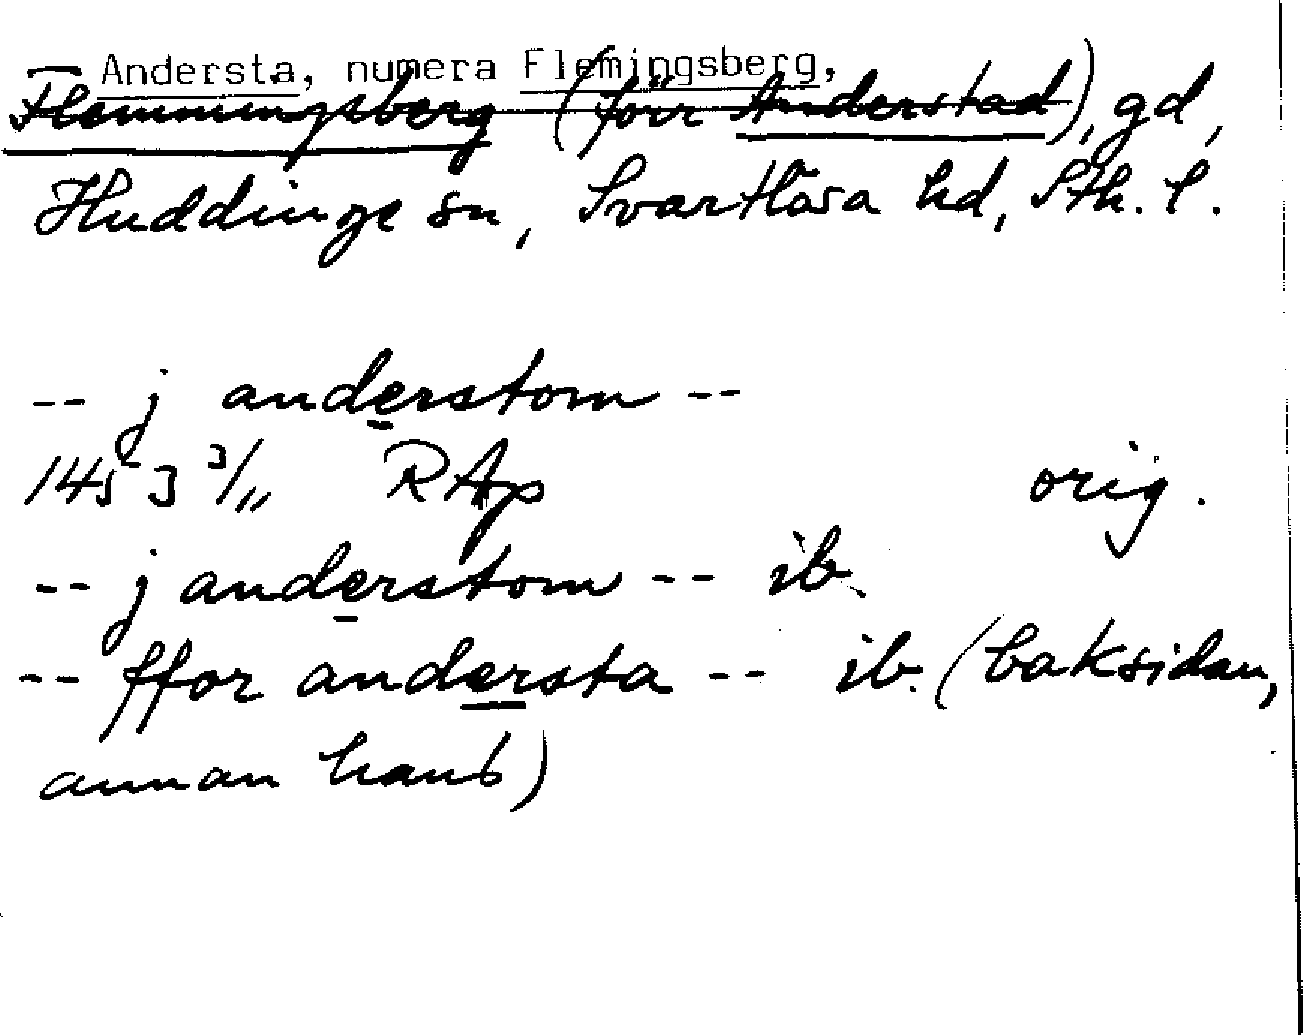 Andersta, numera Flemingsberg,
Flemmingsberg (förr Anderstad), gd,
Huddinge sn, Svartlösa hd, Sth. l.
-- j anderstom --
1453 3/11 RAp orig.
-- j anderstom -- ib.
-- ffor andersta -- ib. (baksidan,
annan hand)